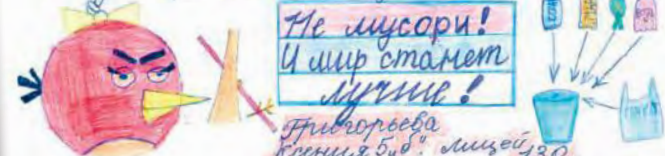 Не мусори!
И мир станет
лучше!
Григорьева
Ксения 5 „б", лицей 130